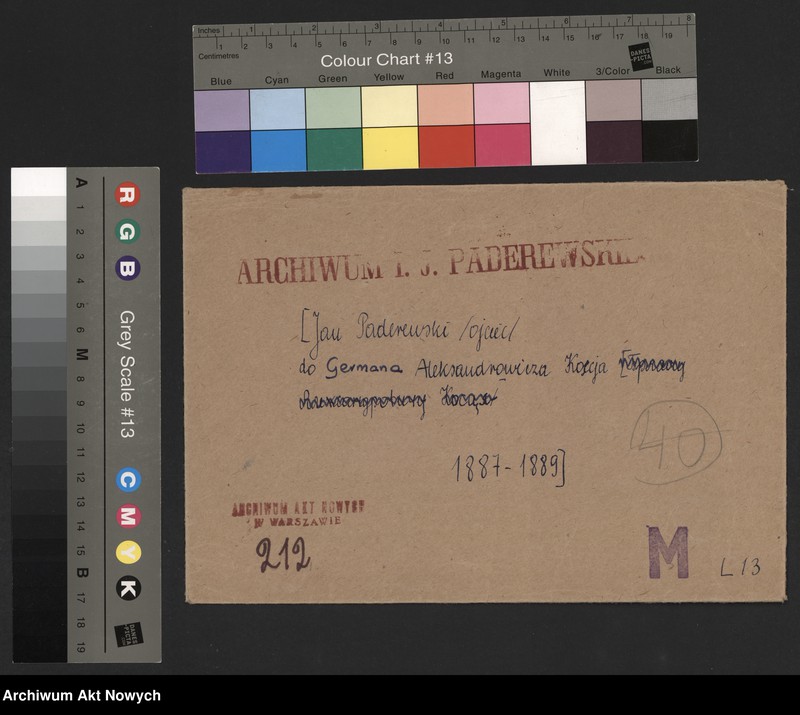 Inches 1 2 3 4 5 6 7 8
Centimetres 1 2 3 4 5 6 7 8 9 10 11 12 13 14 15 16 17 18 19
Colour Chart #13
DANES
PICTA
.COM
Blue Cyan Green Yellow Red Magenta White 3/Color Black
A 1 2 3 4 5 6 M 8 9 10 11 12 13 14 15 B 17 18 19
R G B
Grey Scale #13
C M Y K
DANES
PICTA
.COM
ARCHIWUM I. J. PADEREWSKIE
[Jan Paderewski /ojciec/
do Germana Aleksandrowicza Kocja
40
1887-1889]
ARCHIWUM AKT NOWYCH
W WARSZAWIE
212
M
L 13
Archiwum Akt Nowych